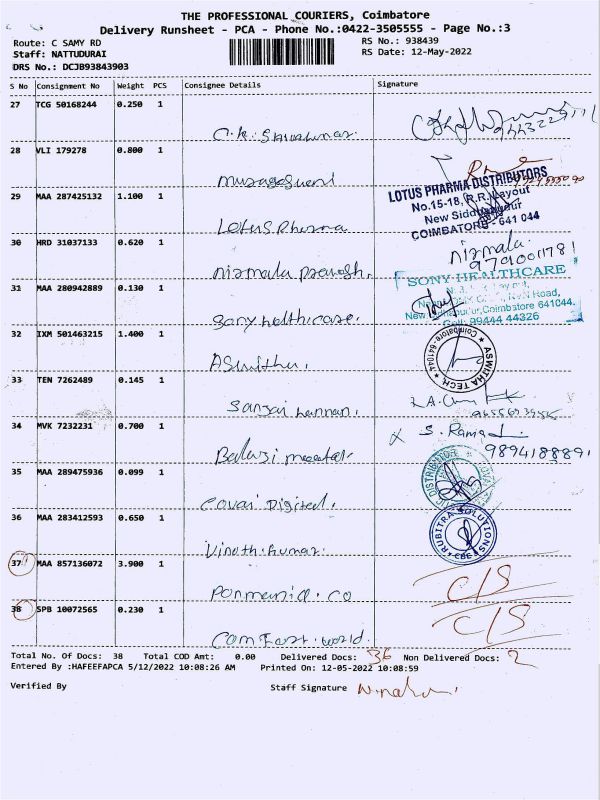 THE PROFESSIONAL COURIERS, Coimbatore
Delivery Runsheet - PCA - Phone No.:0422-3505555 - Page No.:3
Route: C SAMY RD
Staff: NATTUDURAI
DRS No.: DCJB93843903
RS No.: 938439
RS Date: 12-May-2022
S No Consignment No Weight PCS Consignee Details Signature
27 TCG 50168244 0.250 1
28 VLI 179278 0.800 1
29 MAA 287425132 1.100 1 Lotus Pharma
LOTUS PHARMA DISTRIBUTORS
No.15-18, R.R. Layout
New Siddhapudur
COIMBATORE - 641 044
30 HRD 31037133 0.620 1 nirmala
Nirmala
9790011781
31 MAA 280942889 0.130 1
SONY HEALTHCARE
Road,
Coimbatore 641044.
Cell: 99444 44326
32 IXM 501463215 1.400 1
Coimbatore-641044
ASWITHA TECH.
33 TEN 7262489 0.145 1
34 MVK 7232231 0.700 1 Balaji
S. Rama
9894188891
35 MAA 289475936 0.099 1 covai Digital.
36 MAA 283412593 0.650 1 Vinoth.kumar.
RUBITRA SOLUTIONS
CBE
37 MAA 857136072 3.900 1
C/S
38 SPB 10072565 0.230 1
C/S
Total No. Of Docs: 38 Total COD Amt: 0.00 Delivered Docs: 36 Non Delivered Docs: 2
Entered By :HAFEEFAPCA 5/12/2022 10:08:26 AM Printed On: 12-05-2022 10:08:59
Verified By Staff Signature